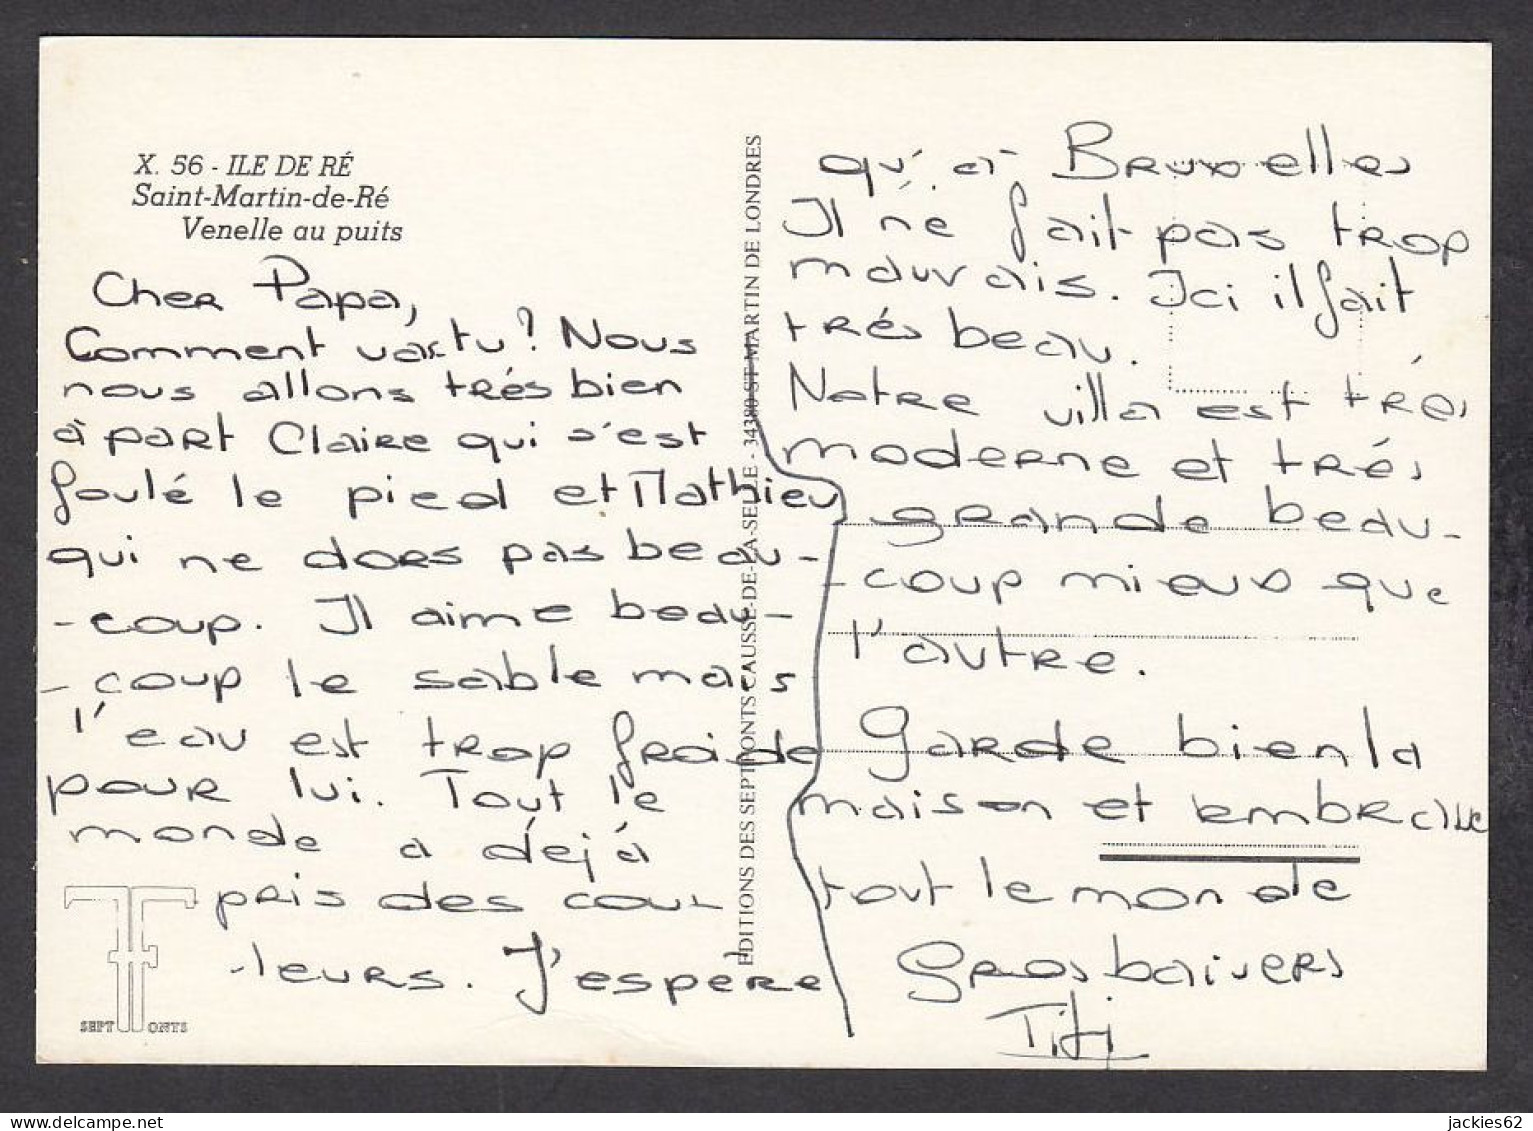 X. 56 - ILE DE RÉ
Saint-Martin-de-Ré
Venelle au puits
Cher Papa,
Comment vas-tu? Nous
nous allons trés bien
à part Claire qui s'est
foulé le pied et Mathieu
qui ne dors pas beau-
-coup. Il aime beau-
-coup le sable mais
l'eau est trop froide
pour lui. Tout le
monde a déjà
pris des cou-
-leurs. J'espère
SEPT PONTS
EDITIONS DES SEPT PONTS CAUSSE-DE-LA-SELLE - 34380 ST-MARTIN DE LONDRES
qu'à Bruxelles
Il ne fait pas trop
mauvais. Ici il fait
trés beau.
Notre villa est trés
moderne et trés
grande beau-
-coup mieux que
l'autre.
Garde bien la
maison et embrasse
tout le monde
Gros baisers
Titi
delcampe.net
jackies62